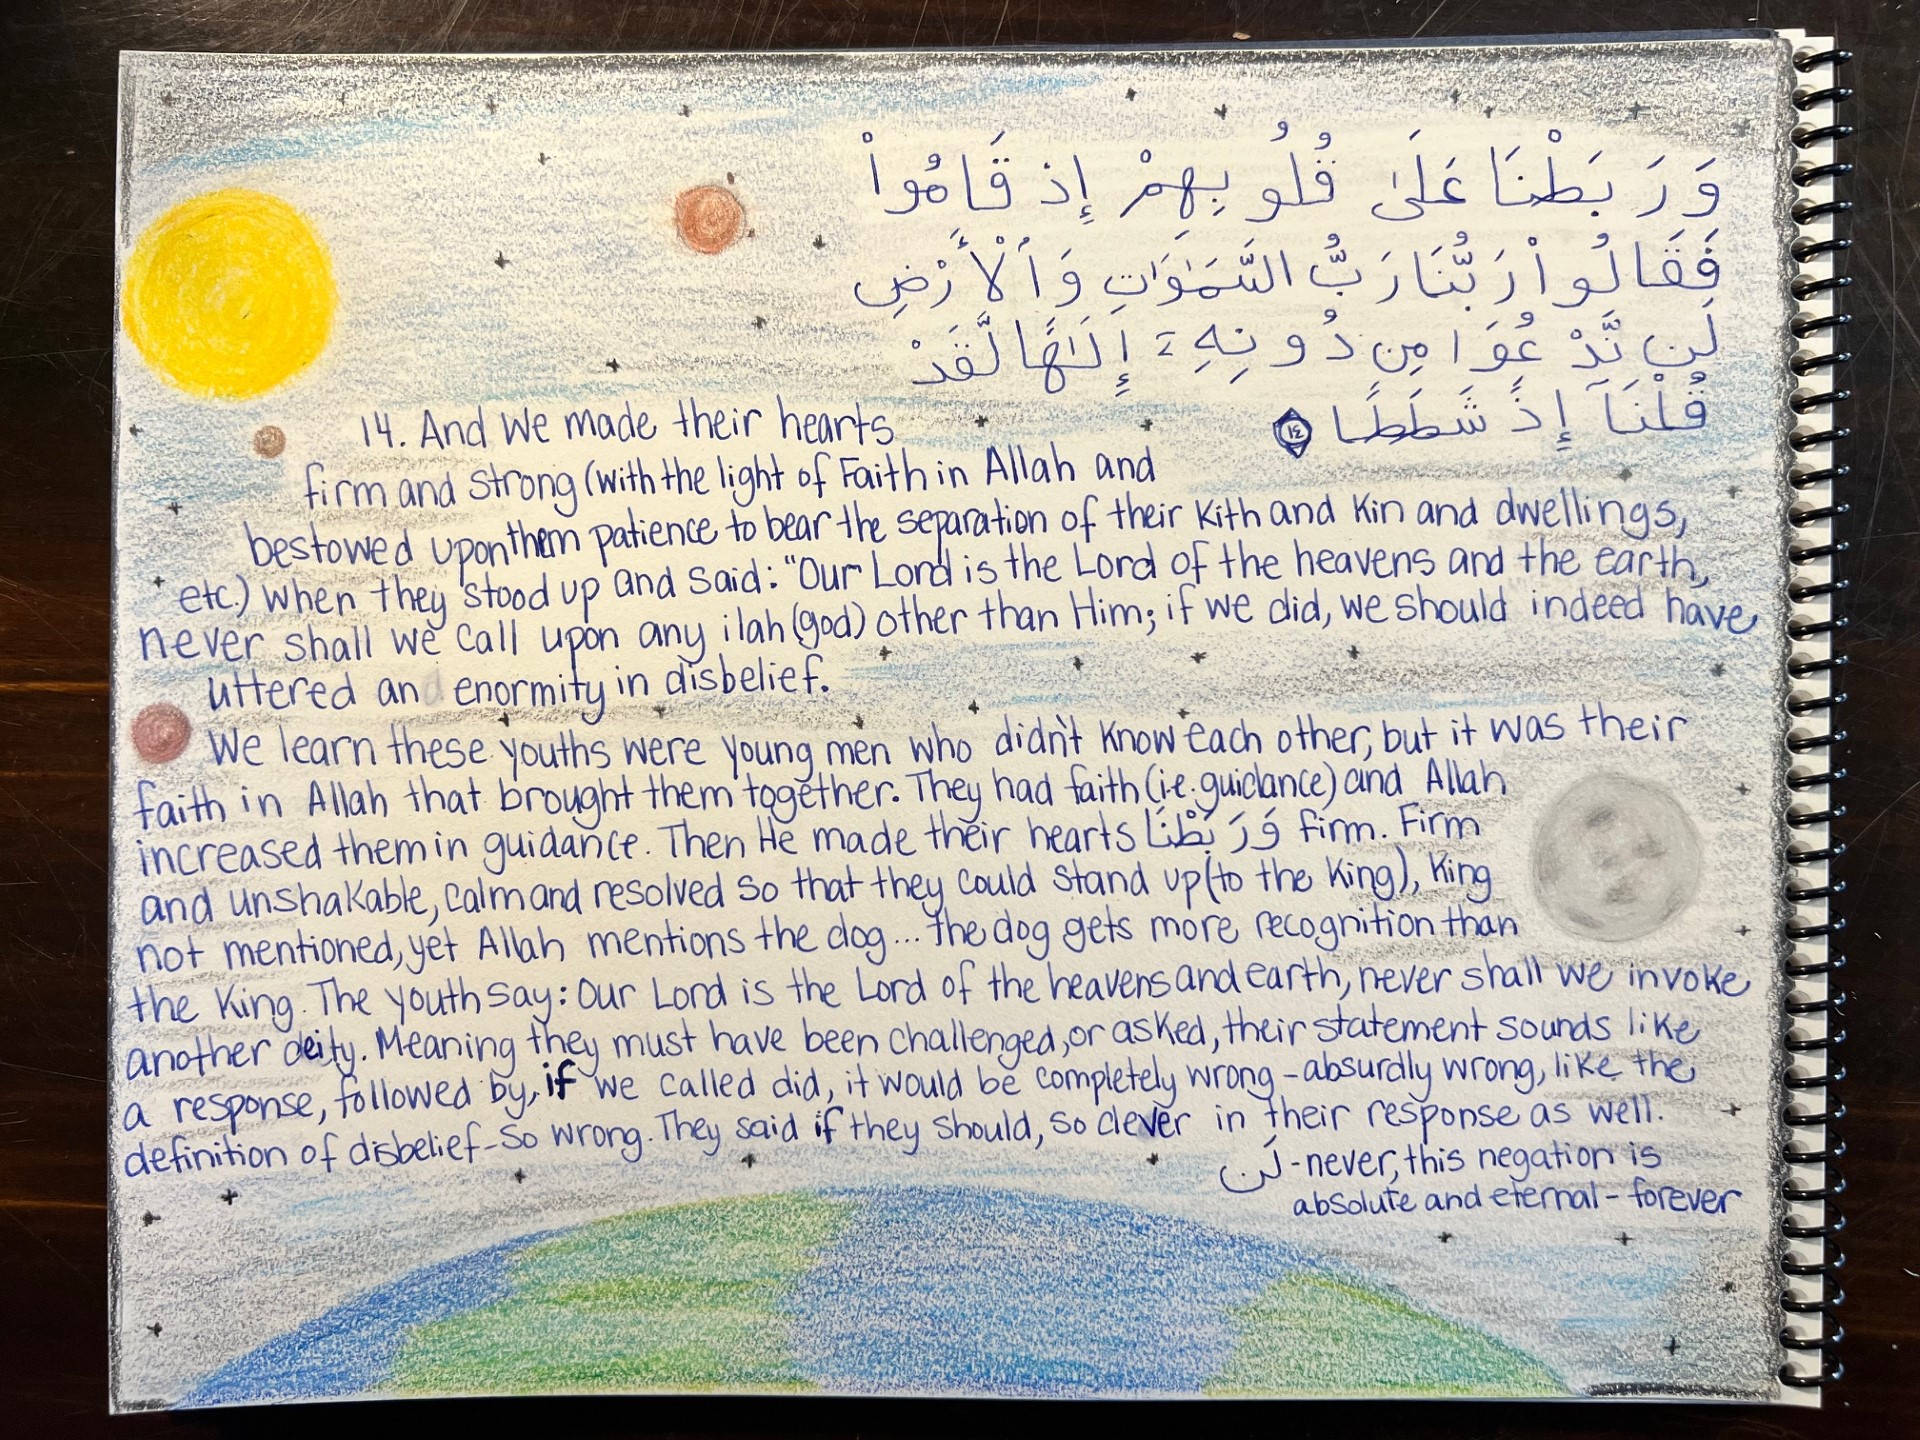 وَرَبَطْنَا عَلَىٰ قُلُوبِهِمْ إِذْ قَامُواْ
فَقَالُواْ رَبُّنَا رَبُّ السَّمَٰوَٰتِ وَٱلْأَرْضِ
لَن نَّدْعُوَا مِن دُونِهِۦٓ إِلَٰهًا لَّقَدْ
قُلْنَآ إِذًا شَطَطًا ١٤
14. And We made their hearts
firm and strong (with the light of Faith in Allah and
bestowed upon them patience to bear the separation of their Kith and Kin and dwellings,
etc.) when they stood up and said: "Our Lord is the Lord of the heavens and the earth,
never shall we call upon any ilah (god) other than Him; if we did, we should indeed have
uttered an enormity in disbelief.
We learn these youths were young men who didn't know each other, but it was their
faith in Allah that brought them together. They had faith (i.e. guidance) and Allah
increased them in guidance. Then He made their hearts وَرَبَطْنَا firm. Firm
and unshakable, calm and resolved so that they could stand up (to the King), King
not mentioned, yet Allah mentions the dog... the dog gets more recognition than
the King. The youth say: Our Lord is the Lord of the heavens and earth, never shall we invoke
another deity. Meaning they must have been challenged, or asked, their statement sounds like
a response, followed by, if we called did, it would be completely wrong - absurdly wrong, like the
definition of disbelief - so wrong. They said if they should, so clever in their response as well.
لَن - never, this negation is
absolute and eternal - forever